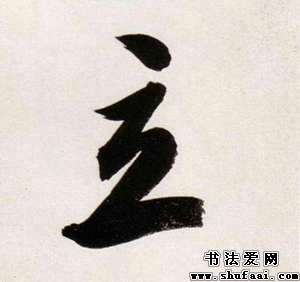 立
书法爱网
www.shufaai.com